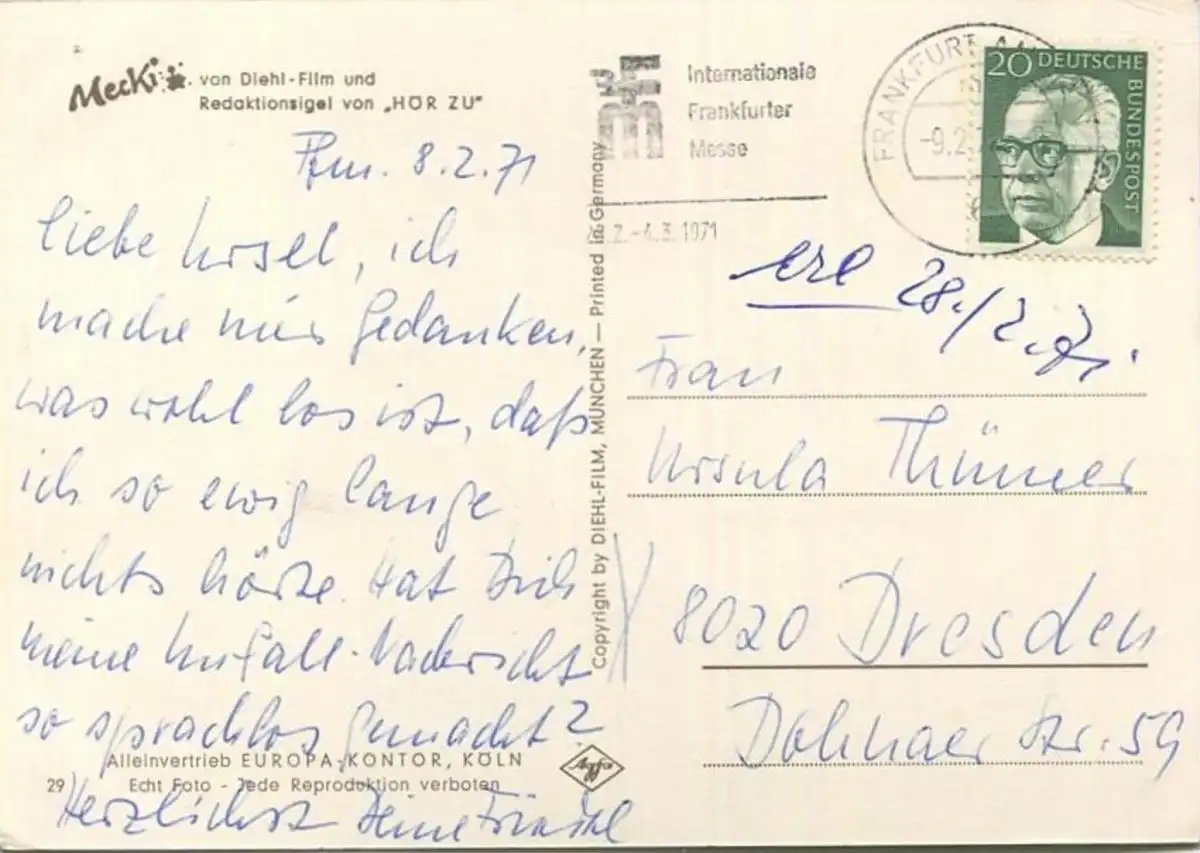 Mecki von Diehl-Film und
Redaktionsigel von „HÖR ZU"
Ffm. 8.2.71
Liebe Ursel, ich
mache mir Gedanken,
was wohl los ist, daß
ich so ewig lange
nichts hörte. Hat Dich
meine Unfall-Nachricht
so sprachlos gemacht?
Alleinvertrieb EUROPA-KONTOR, KÖLN
29 Echt Foto - Jede Reproduktion verboten
Herzlichst Deine
Copyright by DIEHL-FILM, MÜNCHEN — Printed in Germany
Agfa
Internationale
Frankfurter
Messe
-4.3.1971
FRANKFURT AM
-9.2.
20 DEUTSCHE
BUNDESPOST
erl 28./2.71.
Frau
Ursula Thümer
8020 Dresden
Dohnaer Str. 59